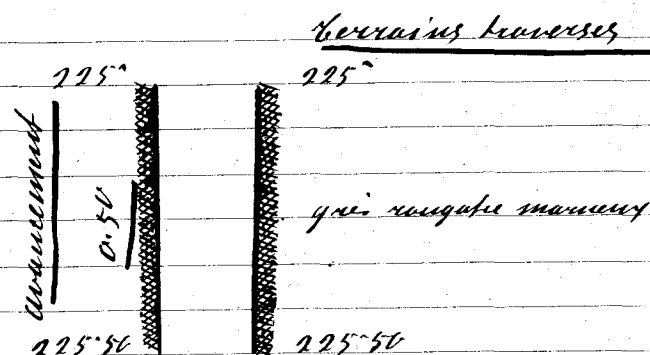 terrains traversés
225ᵐ 225ᵐ
avancement
0.50
grès rougatre marneux
225ᵐ50 225ᵐ50